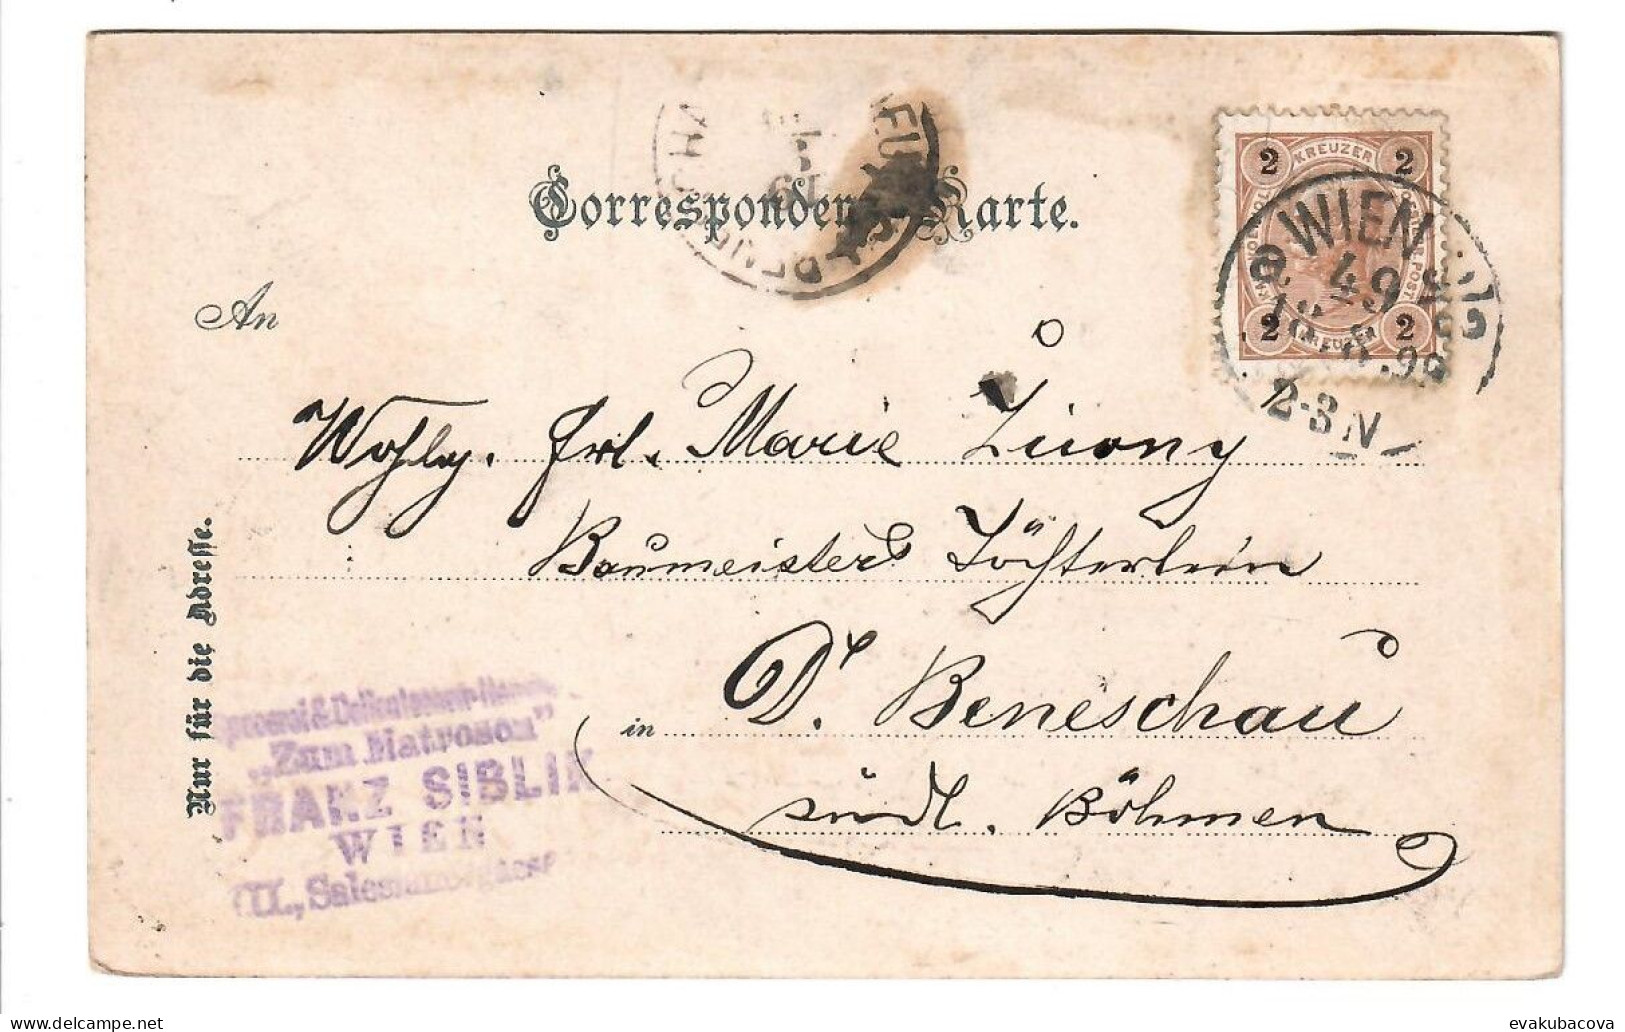 Correspondenz-Karte.
2 KREUZER 2
WIEN
49
2 KREUZER 2
.99
2-3 N
An
Wohlg. Frl. Marie
Baumeisters Töchterlein
in D. Beneschau
südl. Böhmen
Nur für die Adresse.
„Zum Matrosen"
FRANZ SIBLIK
WIEN
III., Salesianergasse
evakubacova